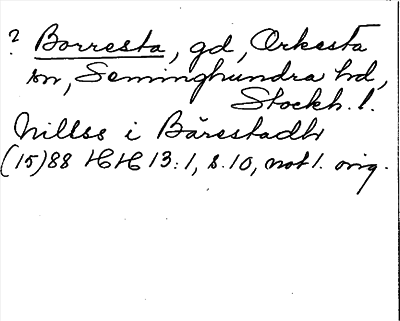 ? Borresta, gd, Orkesta
sn, Seminghundra hd,
Stockh. l.
Nillss i Bårestadh
(15)88 HH 13:1, s. 10, not 1. orig.